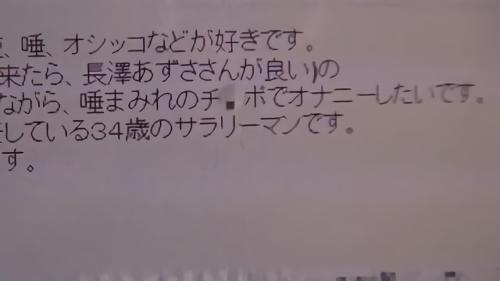 、唾、オシッコなどが好きです。
来たら、長澤あずささんが良い)の
ながら、唾まみれのチ■ポでオナニーしたいです。
している34歳のサラリーマンです。
す。